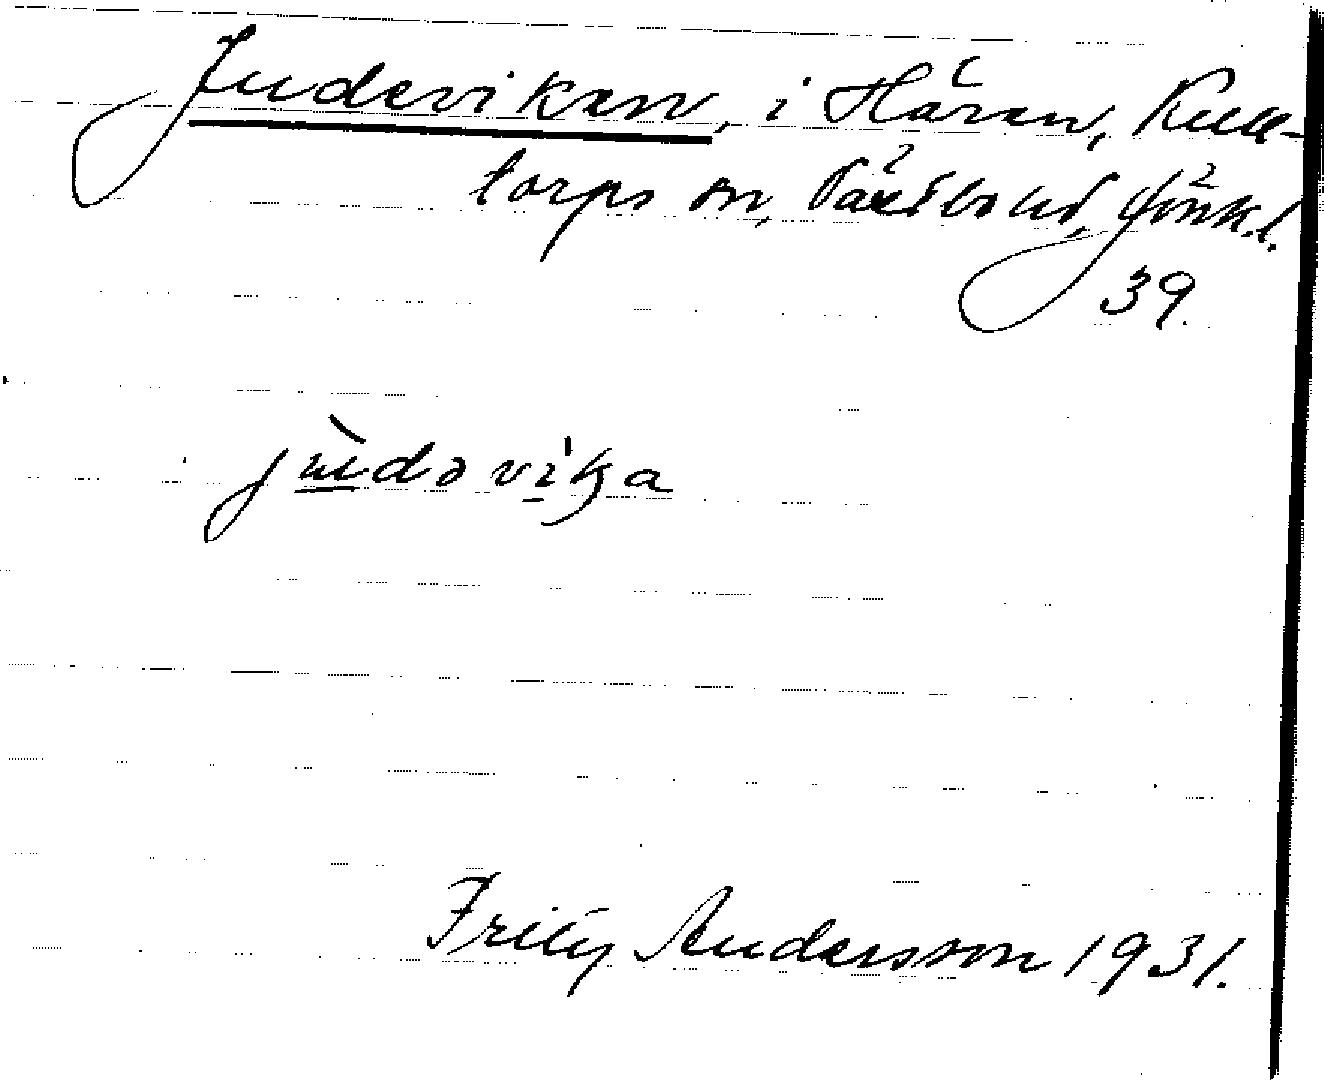 Judeviken, i Håren, Kull-
torps sn, Västbo hd, Jönk.l.
39.
jùdəvika
Fritz Andersson 1931.